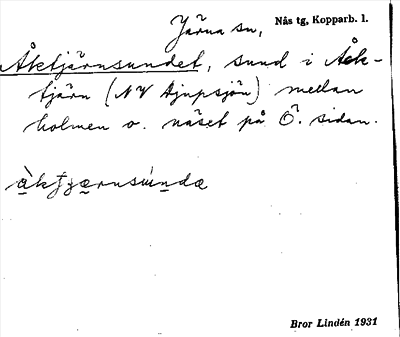 Järna sn, Nås tg, Kopparb. l.
Åktjärnsundet, sund i Åck-
tjärn (NV Djupsjön) mellan
holmen o. näset på Ö. sidan.
àktjærnsúndə
Bror Lindén 1931